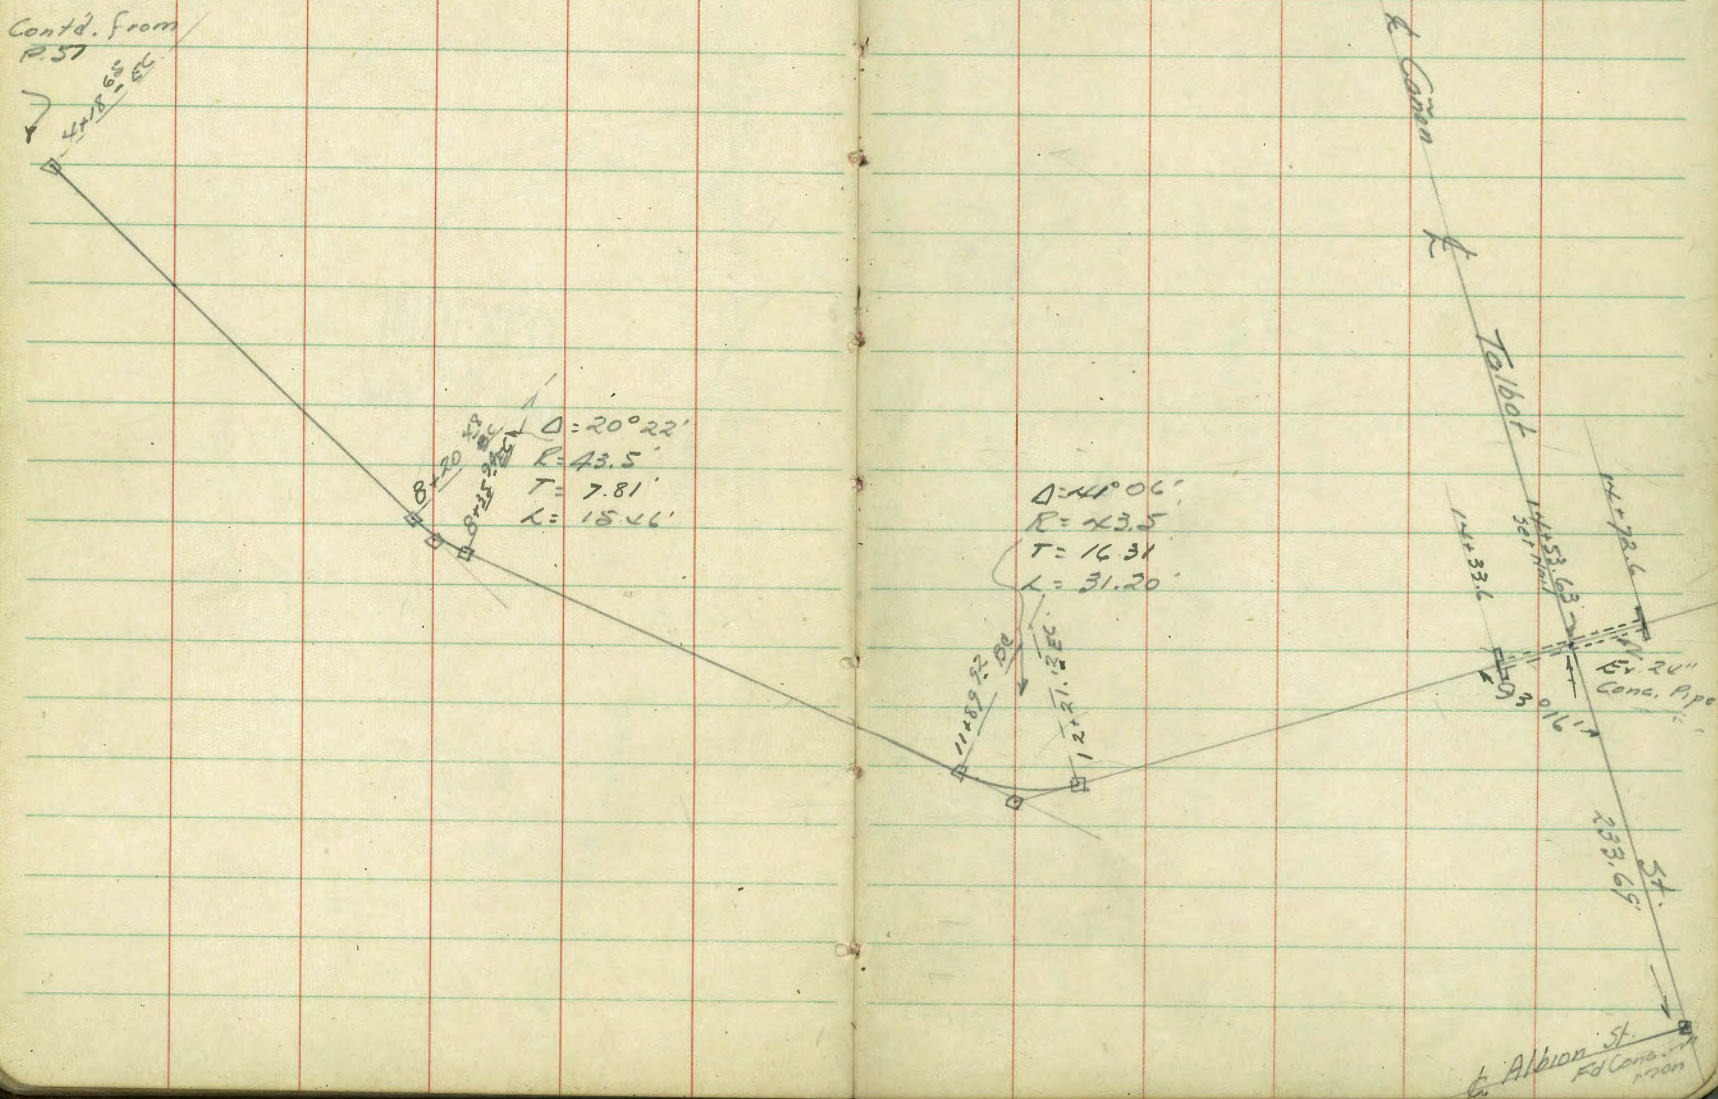 Cont'd. from
P. 57
4+18.65 EC
8+20.48 BC
8+35.94 EC
Δ = 20° 22'
R = 43.5'
T = 7.81'
L = 15.46'
Δ = 41° 06'
R = 43.5
T = 16.31
L = 31.20'
11+89.92 BC
12+21.12 EC
℄ Cañon
℄ Talbot St.
14+33.6
14+53.63
Set Nail
14+73.6
Ex. 24"
Conc. Pipe
93° 16'
233.69'
℄ Albion St.
Fd Conc.
mon